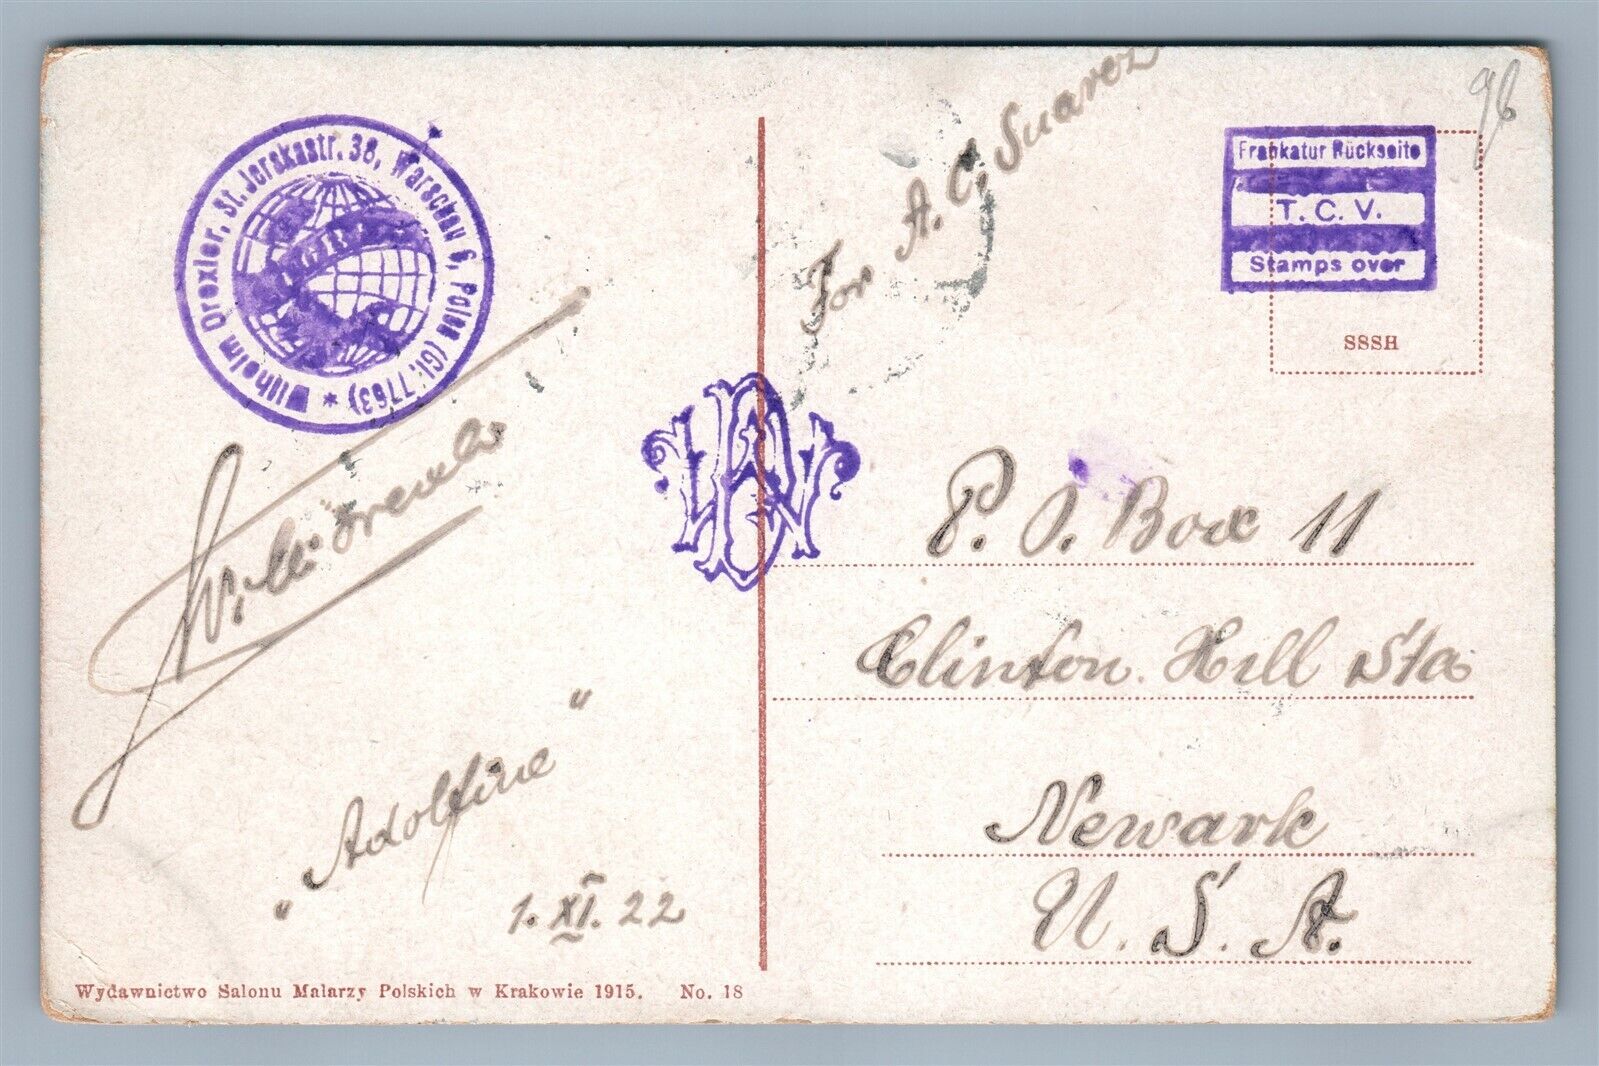 Wilhelm Drexler, St. Jerskastr. 38, Warschau 6, Polen (Gl. 7763) *
For A. C. Suarez
96
Frankatur Rückseite
T. C. V.
Stamps over
SSSH
Willi Drexler
P. O. Box 11
Clinton Hill Sta
Newark
U. S. A.
"Adolfine"
1. XI. 22
Wydawnictwo Salonu Malarzy Polskich w Krakowie 1915. No. 18